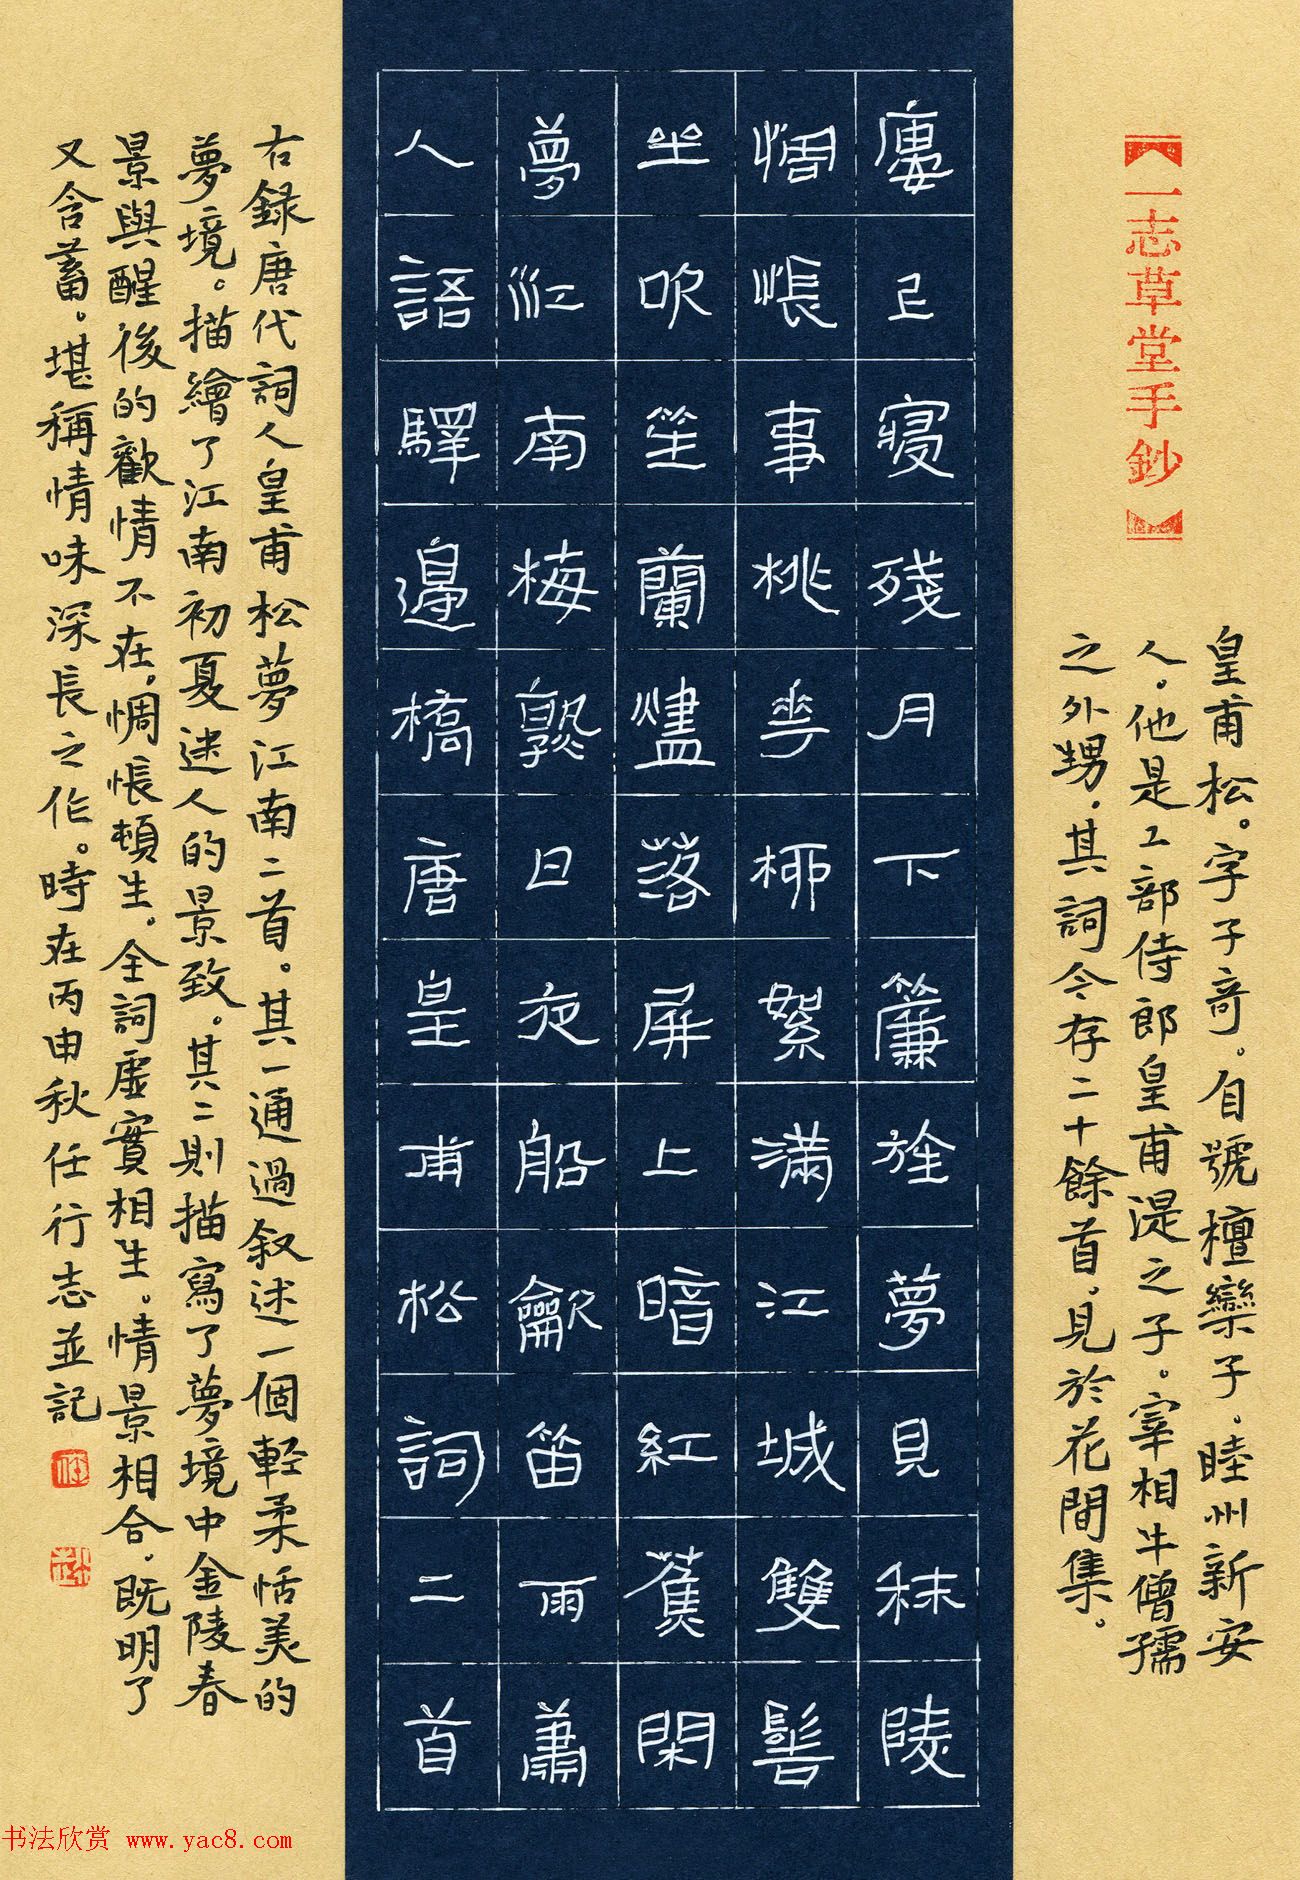 【一志草堂手鈔】
皇甫松。字子奇。自號檀欒子。睦州新安
人。他是工部侍郎皇甫湜之子。宰相牛僧孺
之外甥。其詞今存二十餘首。見於花間集。
廔上寢殘月下簾旌夢見秣陵
惆悵事桃華柳絮滿江城雙髻
坐吹笙蘭燼落屏上暗紅蕉閑
夢江南梅熟日夜船龡笛雨蕭
人語驛邊橋唐皇甫松詞二首
右録唐代詞人皇甫松夢江南二首。其一通過叙述一個輕柔恬美的
夢境。描繪了江南初夏迷人的景致。其二則描寫了夢境中金陵春
景與醒後的歡情不在,惆悵頓生。全詞虛實相生。情景相合。既明了
又含蓄。堪稱情味深長之作。時在丙申秋任行志並記
书法欣赏 www.yac8.com